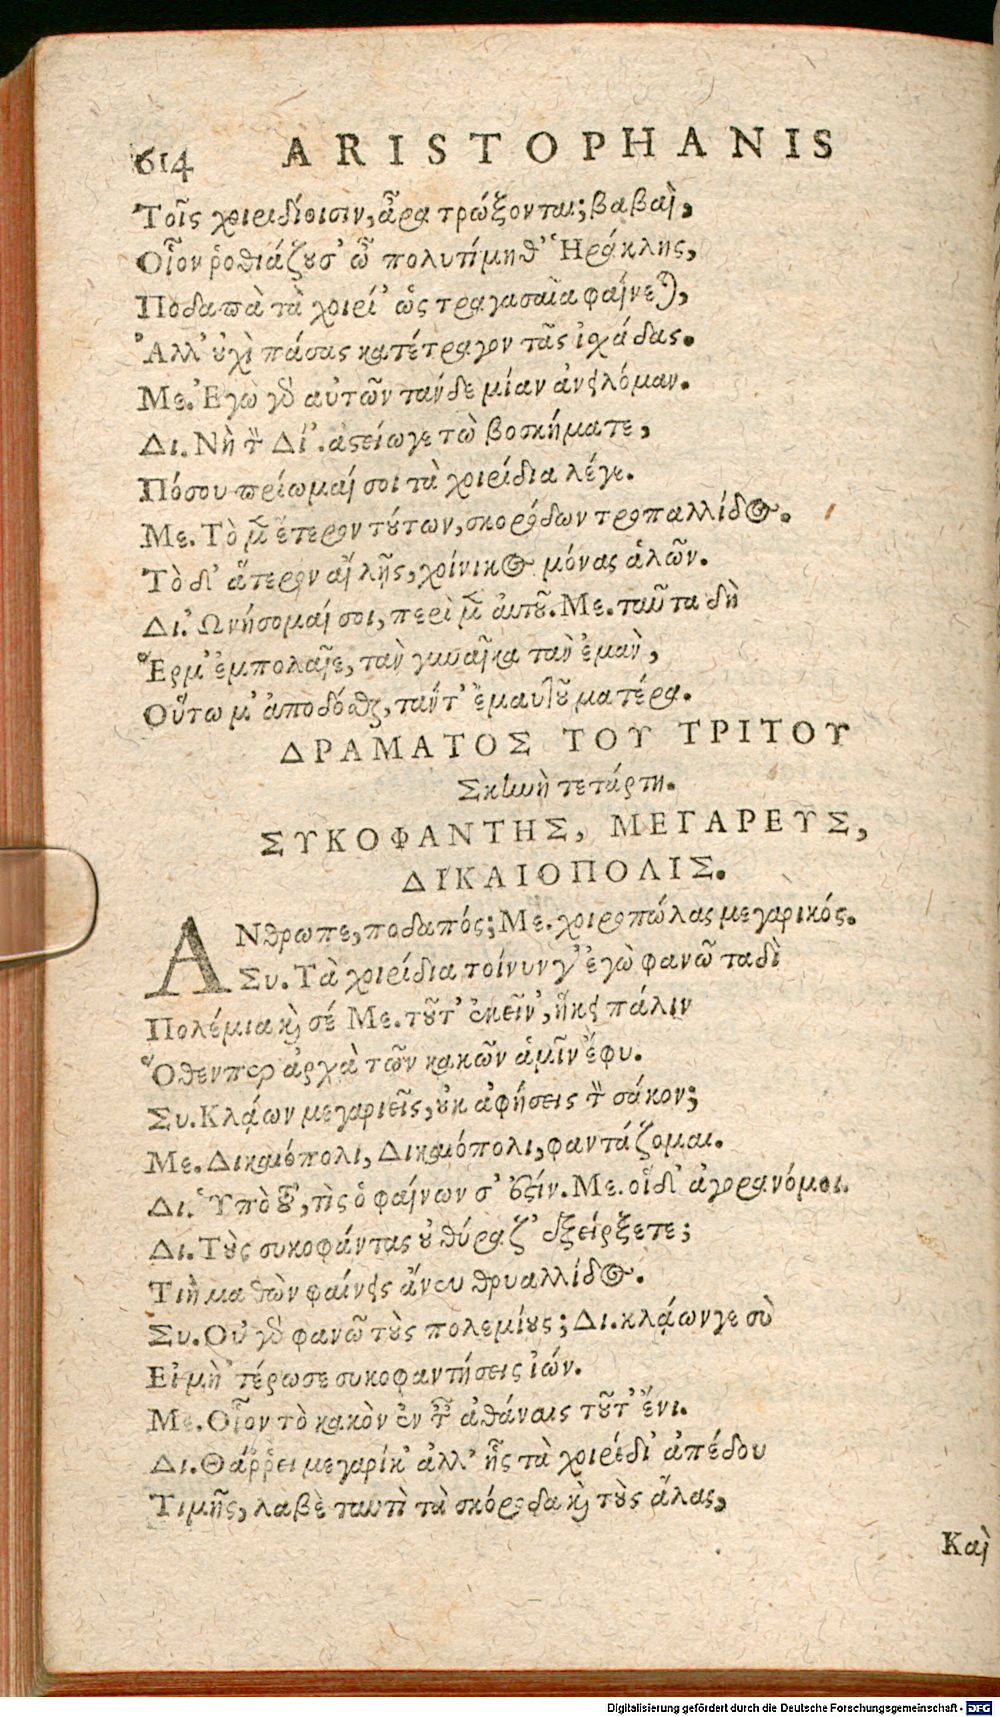 614 ARISTOPHANIS
Τοῖς χοιριδίοισιν, ἆρα τρώξονται; βαβαὶ,
Οἷον ῥοθιάζουσ' ὦ πολυτίμηθ' Ἡράκλης,
Ποδαπὰ τὰ χοιρί' ὡς τραγασαῖα φαίνεται,
Ἀλλ' οὐχὶ πάσας κατέτραγον τὰς ἰσχάδας.
Με. Ἐγὼ γὸ αὐτῶν τάνδε μίαν ἀνειλόμαν.
Δι. Νὴ τὸν Δί'. ἀστείωγε τὼ βοσκήματε,
Πόσου πρίωμαί σοι τὰ χοιρίδια λέγε.
Με. Τὸ μὲν ἕτερον τούτων, σκορόδων τροπαλλίδος.
Τὸ δ' ἅτερον αἴ λῇς, χοίνικος μόνας ἁλῶν.
Δι. Ὠνήσομαί σοι, περὶ μὲν αὐτοῦ. Με. ταῦτα δὴ
Ἑρμ' ἐμπολαῖε, τὰν γυναῖκα τὰν ἐμὰν,
Οὕτω μ' ἀποδόσθαι, τάν τ' ἐμαυτοῦ ματέρα.
ΔΡΑΜΑΤΟΣ ΤΟΥ ΤΡΙΤΟΥ
Σκηνὴ τετάρτη.
ΣΥΚΟΦΑΝΤΗΣ, ΜΕΓΑΡΕΥΣ,
ΔΙΚΑΙΟΠΟΛΙΣ.
ΑΝθρωπε, ποδαπός; Με. χοιροπώλας μεγαρικός.
Συ. Τὰ χοιρίδια τοίνυν γ' ἐγὼ φανῶ ταδὶ
Πολέμια καὶ σέ Με. τοῦτ' ἐκεῖν', ἥκει πάλιν
Ὅθενπερ ἀρχὰ τῶν κακῶν ἁμῖν ἔφυ.
Συ. Κλάων μεγαριεῖς, οὐκ ἀφήσεις τὸν σάκον;
Με. Δικαιόπολι, Δικαιόπολι, φαντάζομαι.
Δι. Ὑπὸ τοῦ, τὶς ὁ φαίνων σ' ἐστίν. Με. οἱ δ' ἀγορανόμοι.
Δι. Τοὺς συκοφάντας οὐ θύραζ' ἐξείρξετε;
Τιὴ μαθὼν φαίνεις ἄνευ θρυαλλίδος.
Συ. Οὐ γὸ φανῶ τοὺς πολεμίους; Δι. κλάων γε σὺ
Εἰ μὴ 'τέρωσε συκοφαντήσεις ἰών.
Με. Οἷον τὸ κακὸν ἐν ταῖς ἀθάναις τοῦτ' ἔνι.
Δι. Θάῤῥει μεγαρίκ' ἀλλ' ἧς τὰ χοιρίδι' ἀπέδου
Τιμῆς, λαβὲ ταυτὶ τὰ σκόροδα καὶ τοὺς ἅλας,
Καὶ
Digitalisierung gefördert durch die Deutsche Forschungsgemeinschaft - DFG